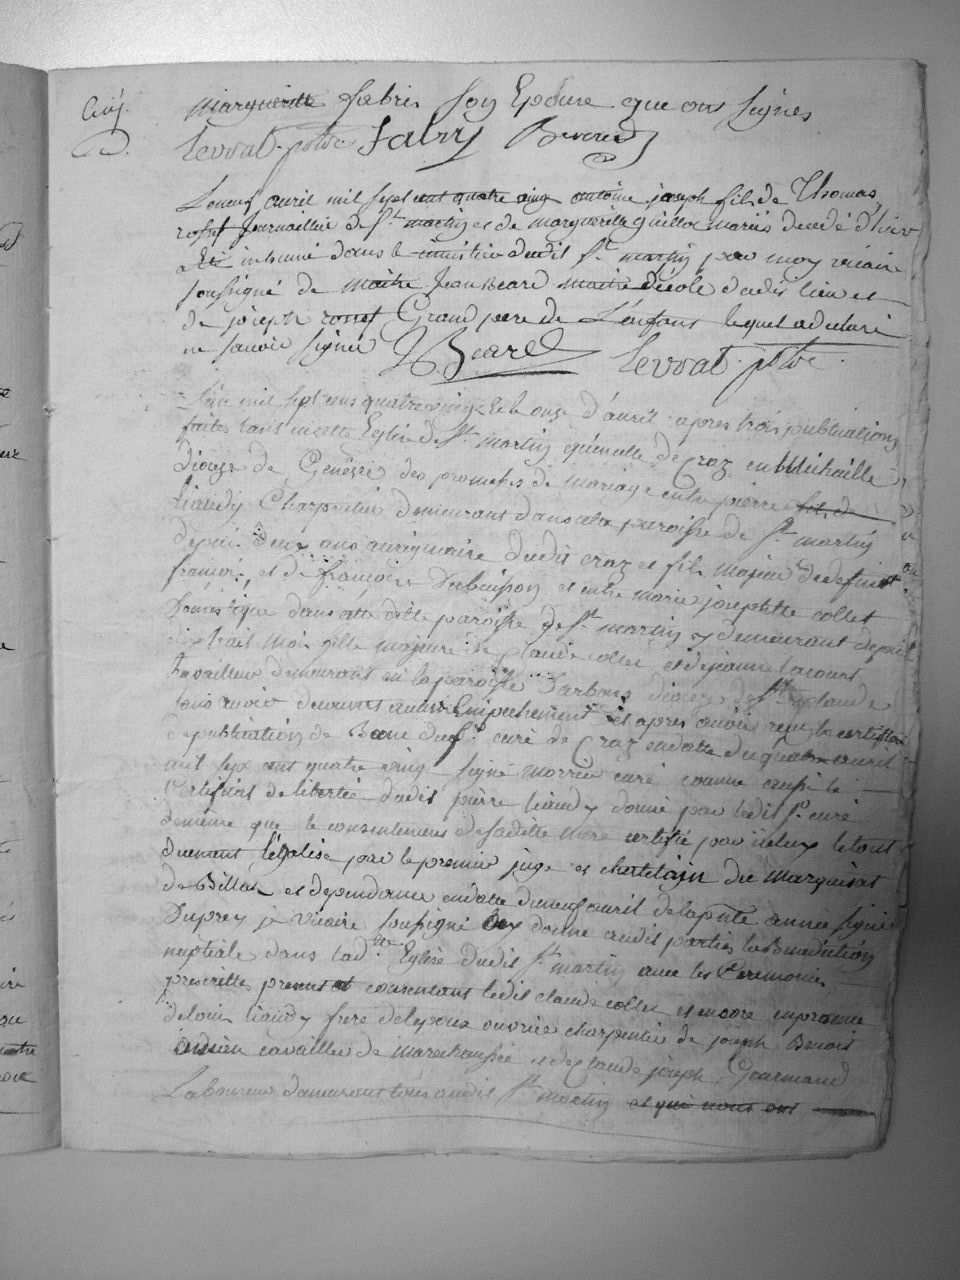 Margueritte fabri son Epouse que ont signés
Levrat ptre Fabry
Lonze avril mil sept cent quatre vingt antoine joseph fils de Thomas
rosset Journaillier de St martin et de marguerite guillox mariés decedé d'hier
a Eté inhumé dans le cimitière dudit St martin par moy vicaire
soussigné de maitre Jean Beard maitre d'école dudit lieu et
de joseph rosset Grand pere de L'enfant lequel a declaré
ne savoir signer J Beard Levrat ptre
L'an mil sept cens quatre vingt et le onze d'avril apres trois publications
faites tant en cette Eglise de St martin qu'en celle de Craz en Michaille
diocese de Genève des promesses de mariage entre pierre fils de
liaudy Charpentier demeurant dans cette paroisse de St martin
depuis deux ans originaire dudit Craz et fils majeur de defunt
françois et de françoise Dubuisson et entre marie josephtte collet
Domestique dans cette ditte paroisse de St martin y demeurant depuis
huit mois fille majeure de Claude collet et de jeanne lacourt
travailleur demeurant en la paroisse d'arbens diocese de St Claude
sans avoir decouvert autre Empechement et apres avoir reçu le certificat
de publication de Banc du Sr curé de Craz en datte du quatre avril
mil sept cent quatre vingt signé morrier curé comme aussi le
Certificat de liberté dudit pierre liaudy donné par ledit Sr curé
de meme que le consentement de sa ditte mere certifié par iceluy le tout
duement légalisé par le premier juge et chatelain du Marquisat
de Billiat et dependance en datte du neuf avril de la pnte année signé
Duprey je vicaire soussigné ay donné audit parties la Benediction
nuptiale dans ladte Eglise dudit St martin avec les Ceremonies
prescrittes present et consentant ledit claude collet et encore en presence
de louis liaudy frere de lepoux ouvrier charpentier de joseph Benoit
ancien cavallier de marechaussée et de Claude joseph Gourmand
Laboureur demeurant tous audit St martin et qui nous ont